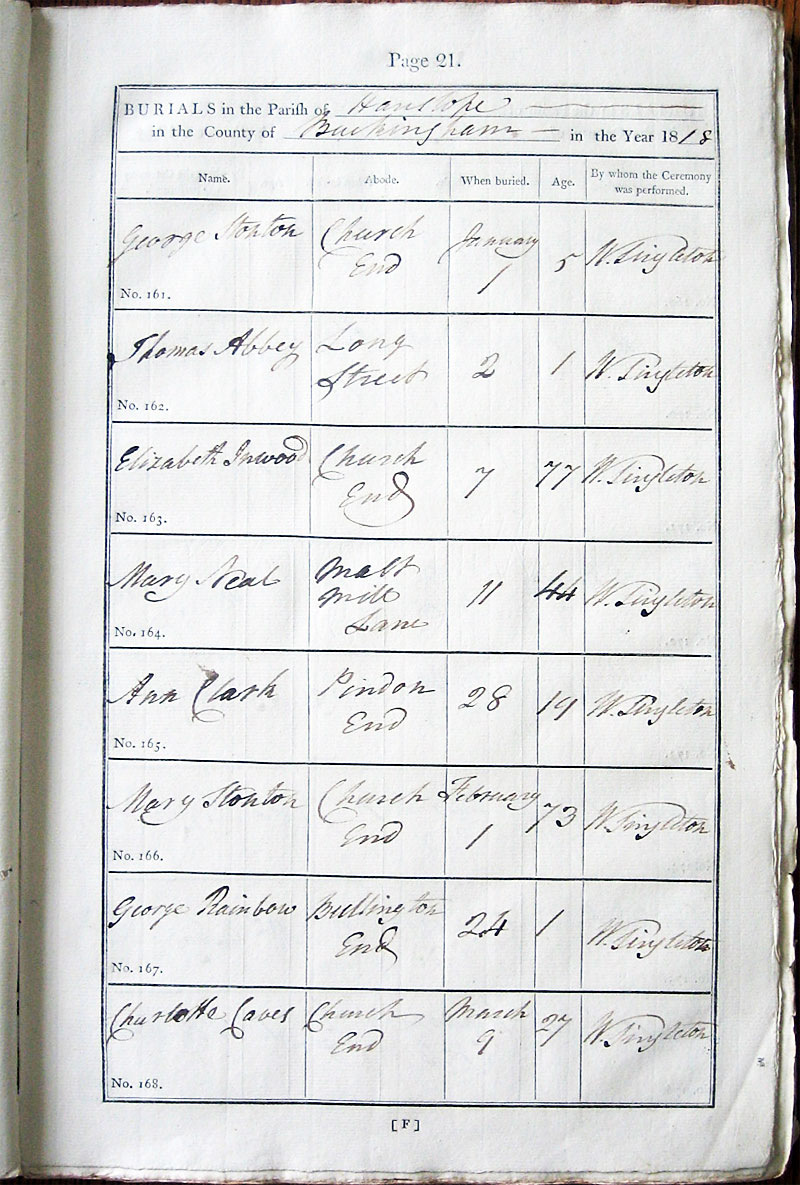 Page 21.
BURIALS in the Parish of Hanslope
in the County of Buckingham in the Year 1818
Name. Abode. When buried. Age. By whom the Ceremony was performed.
George Stonton Church January
End 1 5 W. Singleton
No. 161.
Thomas Abbey Long
Street 2 1 W. Singleton
No. 162.
Elizabeth Inwood Church
End 7 77 W. Singleton
No. 163.
Mary Neal Malt
Mill 11 44 W. Singleton
Lane
No. 164.
Ann Clark Pindon 28 19 W. Singleton
End
No. 165.
Mary Stonton Church February
End 1 73 W. Singleton
No. 166.
George Rainbow Bullington
End 24 1 W. Singleton
No. 167.
Charlotte Caves Church March
End 9 27 W. Singleton
No. 168.
[F]